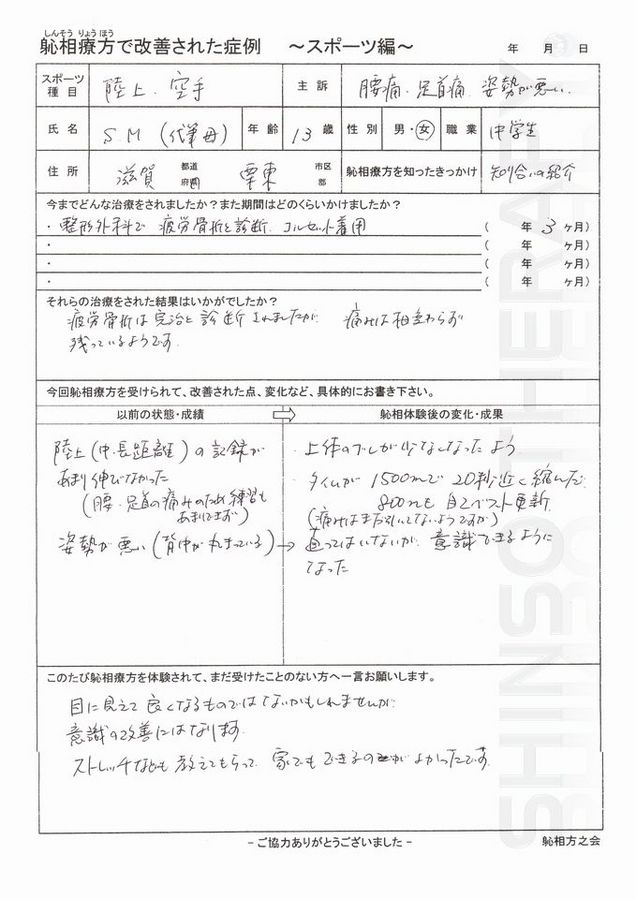 しんそう りょうほう
恥相療方で改善された症例 ～スポーツ編～ 年 月 日
スポーツ種目 陸上、空手 主訴 腰痛、足首痛、姿勢が悪い、
氏名 S.M (代筆母) 年齢 13歳 性別 男・女 職業 中学生
住所 滋賀 都道府県 栗東 市区郡 恥相療方を知ったきっかけ 知り合いの紹介
今までどんな治療をされましたか？また期間はどのくらいかけましたか？
・整形外科で 疲労骨折と診断、コルセット着用 ( 年 3 ヶ月)
・ ( 年 ヶ月)
・ ( 年 ヶ月)
・ ( 年 ヶ月)
それらの治療をされた結果はいかがでしたか？
疲労骨折は完治と診断されましたが、痛みは相変わらず
残っているようです。
今回恥相療方を受けられて、改善された点、変化など、具体的にお書き下さい。
以前の状態・成績 ⇨ 恥相体験後の変化・成果
陸上(中・長距離)の記録が
あまり伸びなかった
(腰、足首の痛みのため練習も
あまりできず)
姿勢が悪い(背中が丸まっている)→
・上体のブレが少なくなったよう
・タイムが1500mで20秒近く縮んだ。
800mも自己ベスト更新
(痛みはまだ引いてないようですが)
直ってはいないが、意識できるように
なった
このたび恥相療方を体験されて、まだ受けたことのない方へ一言お願いします。
目に見えて良くなるものではないかもしれませんが、
意識の改善にはなります。
ストレッチなども教えてもらって、家でもできるのがよかったです。
- ご協力ありがとうございました - 恥相方之会
SHINSO THERAPY